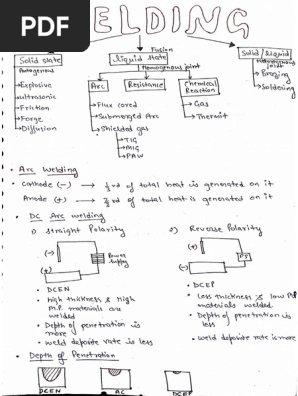 PDF
WELDING
Fusion
Solid state
liquid state
Solid/liquid
Autogenous
Homogenous joint
joint
Brazing
Soldering
Arc
Resistance
Chemical Reaction
Explosive
ultrasonic
Friction
Forge
Diffusion
Flux cored
Submerged Arc
Shielded gas
TIG
MIG
PAW
Gas
Thermit
Arc Welding
Cathode (-) → 1/3 rd of total heat is generated on it
Anode (+) → 2/3 rd of total heat is generated on it
DC Arc welding
1) Straight Polarity
2) Reverse Polarity
(-)
(+)
Power supply
(+)
(-)
PS
DCEN
High thickness & high M.P. materials are welded
Depth of penetration is more
Weld deposite rate is less
DCEP
Less thickness & low materials welded
Depth of penetration is less
Weld deposite rate is more
Depth of Penetration
DCEN
AC
DCEP